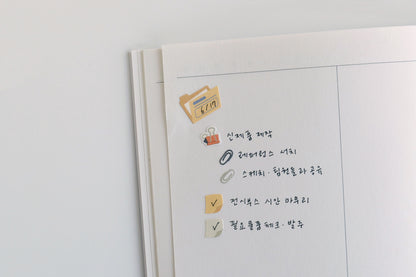 6/17
신제품 제작
레퍼런스 서치
스케치 · 팀원들과 공유
전시부스 시안 마무리
필요물품 체크 · 발주